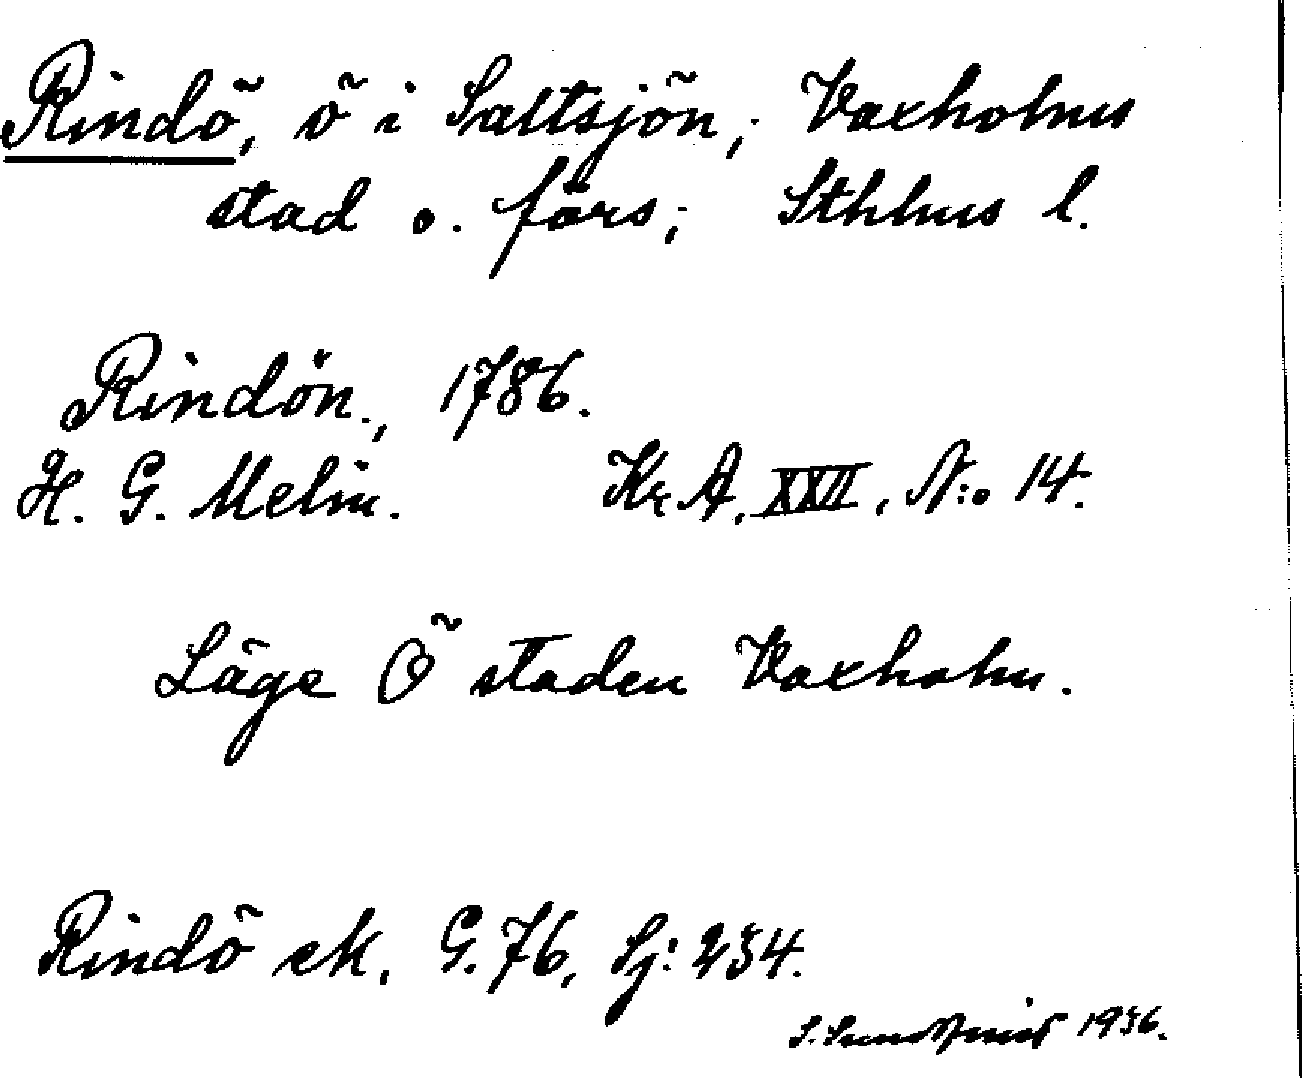 Rindö, ö i Saltsjön; Vaxholms
stad o. förs; Sthlms l.
Rindön., 1786.
H. G. Melin. Kr. A. XXII, N:o 14.
Läge Ö staden Vaxholm.
Rindö ek. G. 76, Sj: 234.
S. 1936.